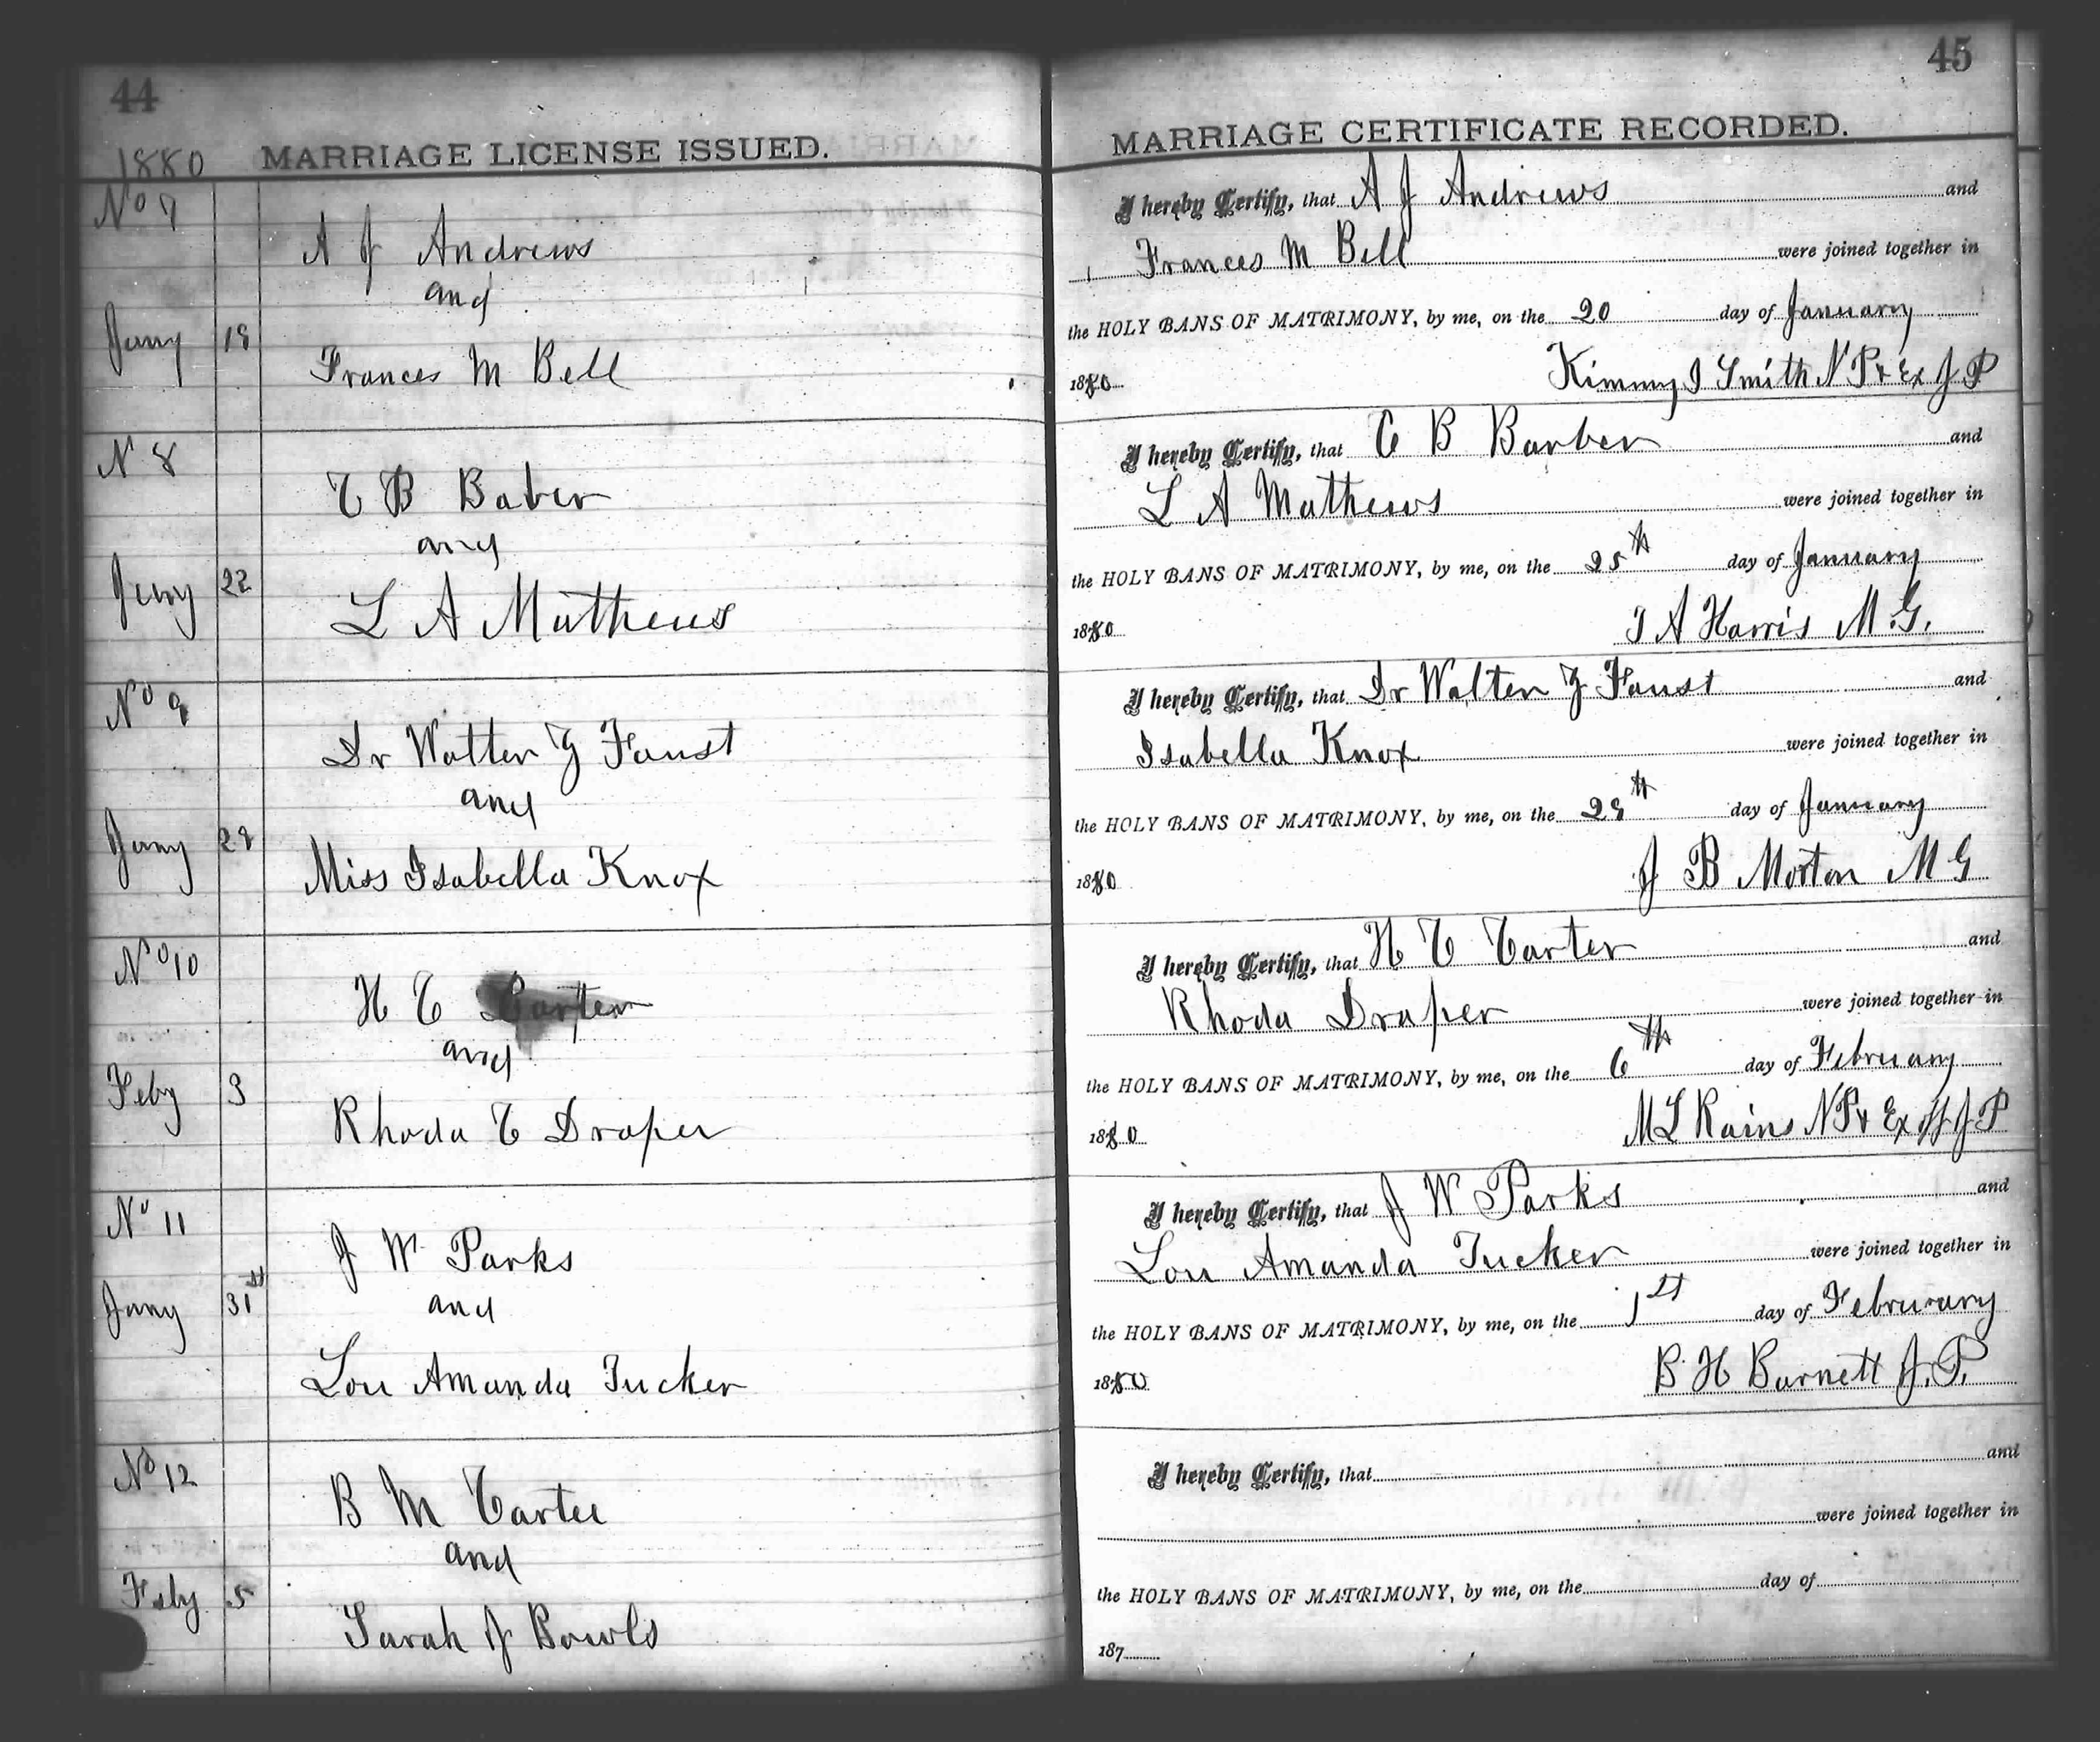 44
1880 MARRIAGE LICENSE ISSUED.
No 7
A J Andrews
and
Jany 19
Frances M Bell
N 8
C B Baber
and
Jany 22
L A Mathews
No 9
Dr Walter G Faust
and
Jany 29
Miss Isabella Knox
No 10
H C Carter
and
Feby 3
Rhoda C Draper
No 11
J W Parks
Jany 31st
and
Lou Amanda Tucker
No 12
B M Cartee
and
Feby 5
Sarah J Bowls
45
MARRIAGE CERTIFICATE RECORDED.
I hereby Certify, that A J Andrews and
Frances M Bell were joined together in
the HOLY BANS OF MATRIMONY, by me, on the 20 day of January
1880 Kimmy J Smith N P & Ex J P
I hereby Certify, that C B Barber and
L A Mathews were joined together in
the HOLY BANS OF MATRIMONY, by me, on the 25th day of January
1880 J A Harris M.G.
I hereby Certify, that Dr Walter G Faust and
Isabella Knox were joined together in
the HOLY BANS OF MATRIMONY, by me, on the 29th day of January
1880 J B Morton M G
I hereby Certify, that H C Carter and
Rhoda Draper were joined together in
the HOLY BANS OF MATRIMONY, by me, on the 6th day of February
1880 M L Rains N P & Ex off J P
I hereby Certify, that J W Parks and
Lou Amanda Tucker were joined together in
the HOLY BANS OF MATRIMONY, by me, on the 1st day of Februrary
1880 B H Burnett J.P.
I hereby Certify, that and
were joined together in
the HOLY BANS OF MATRIMONY, by me, on the day of
187